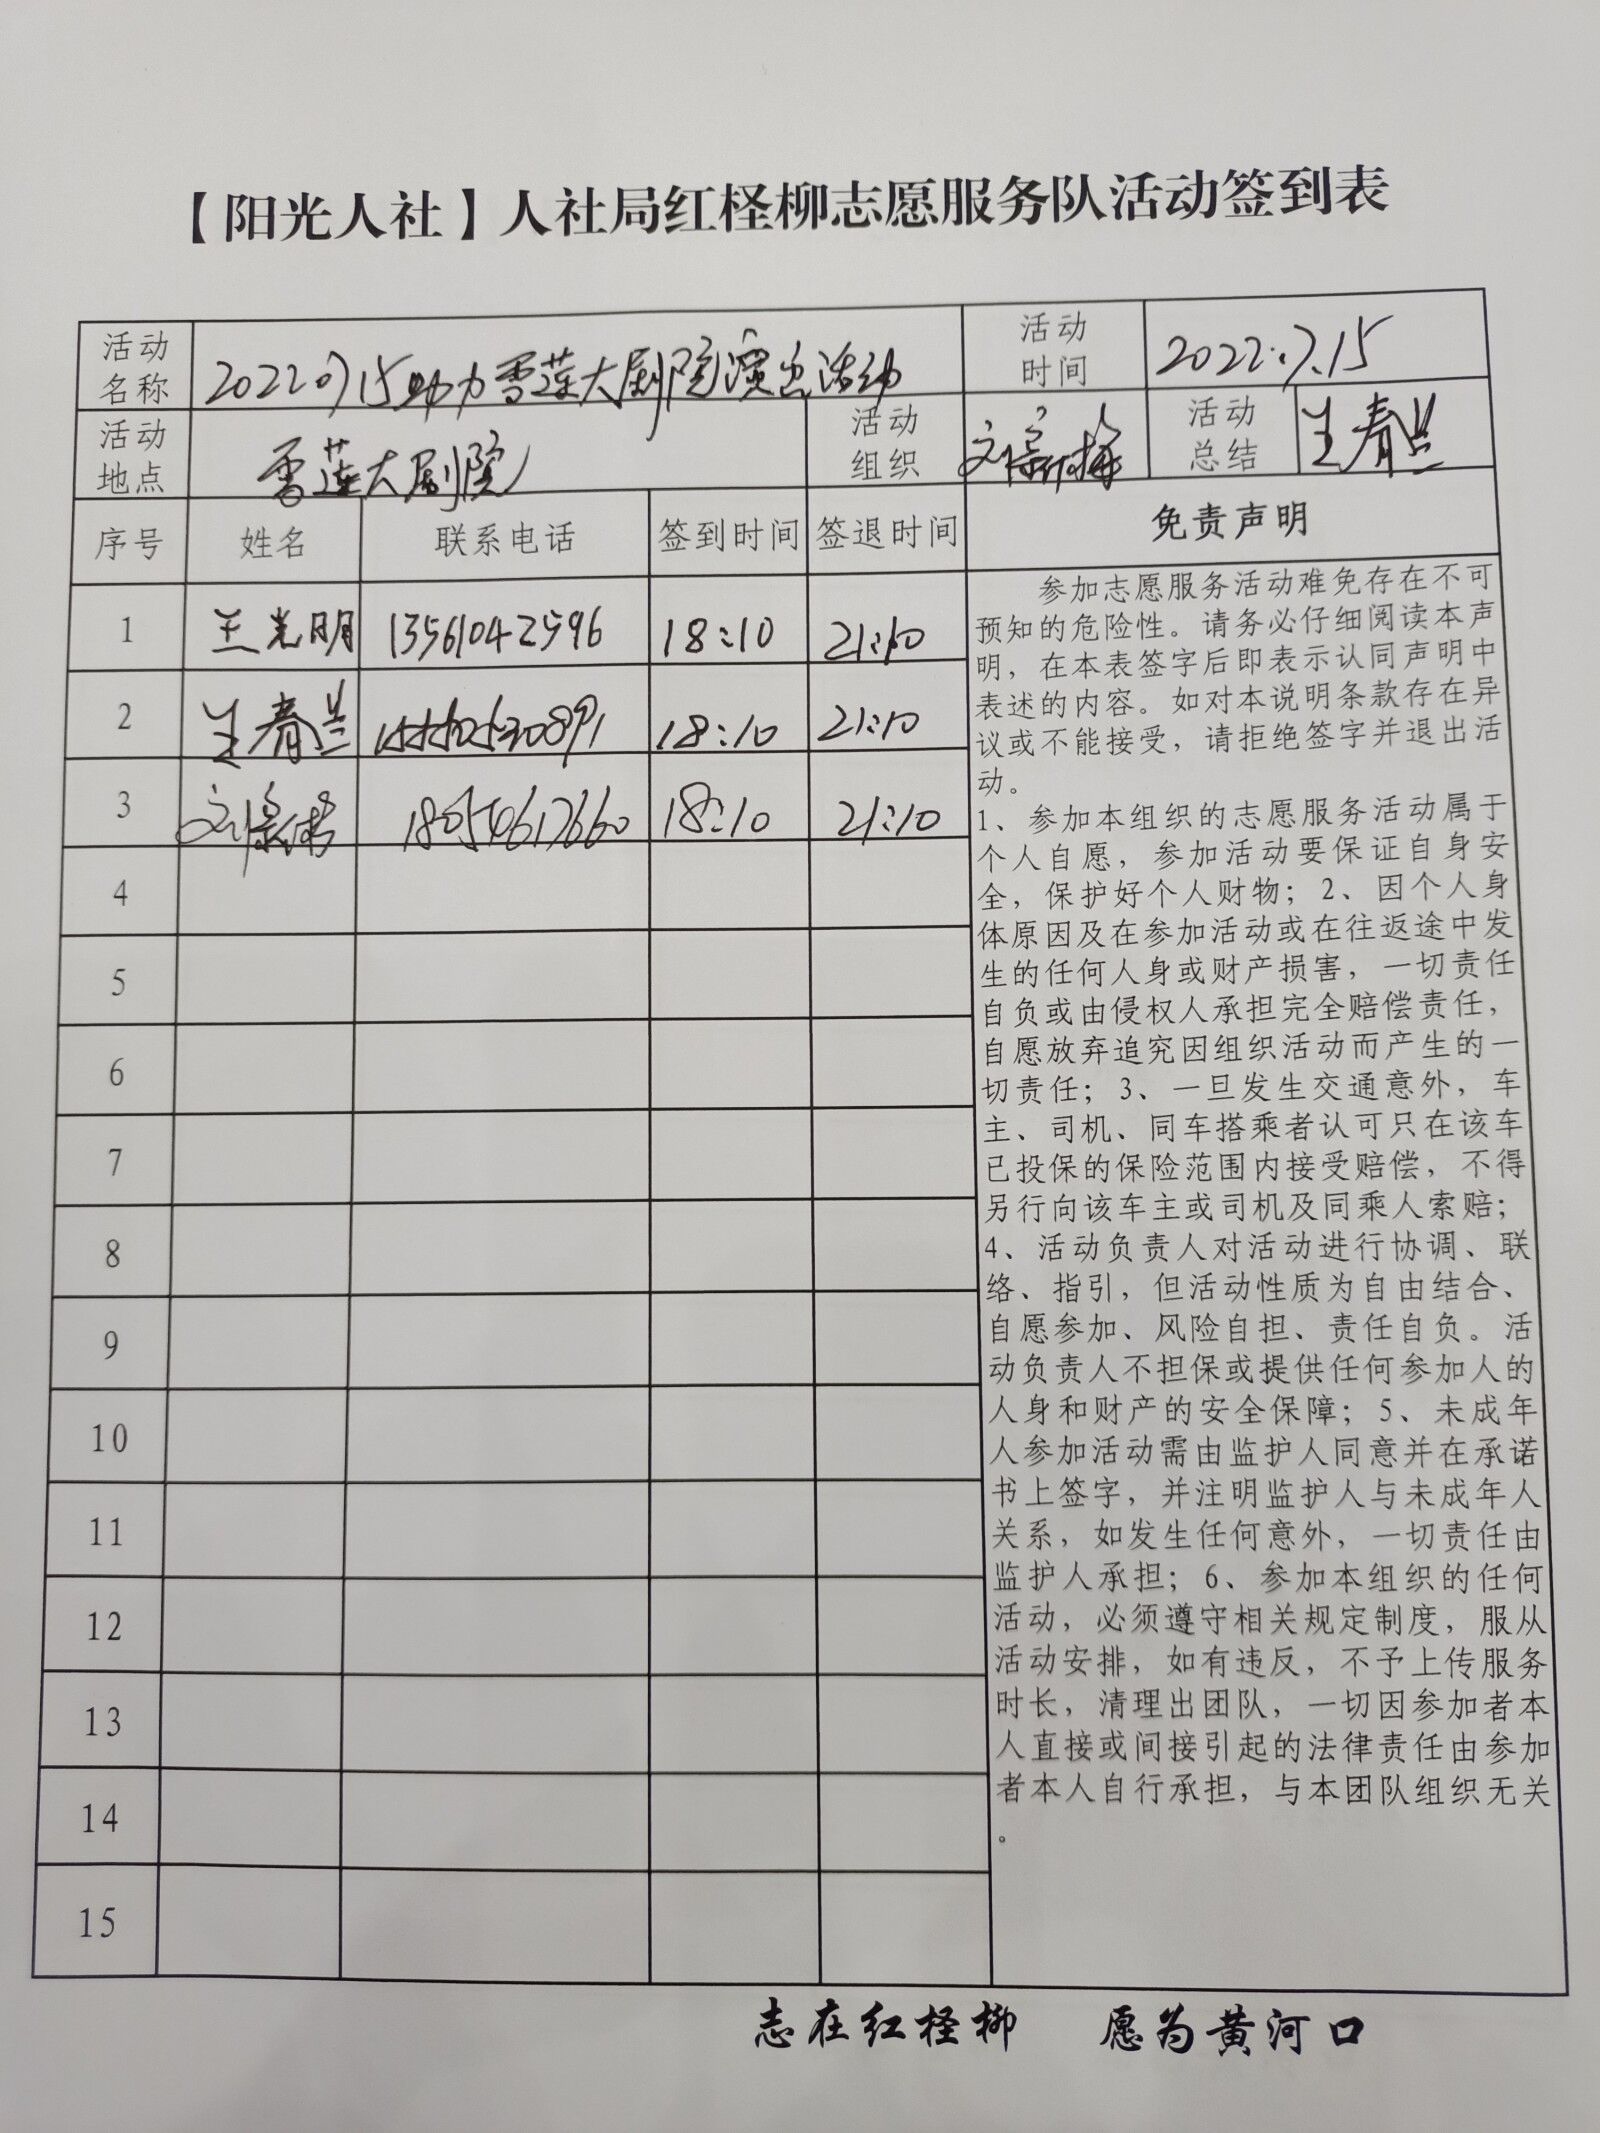 【阳光人社】人社局红柽柳志愿服务队活动签到表
活动名称 2022.07.15助力雪莲大剧院演出活动 活动时间 2022.7.15
活动地点 雪莲大剧院 活动组织 活动总结 王春兰
序号 姓名 联系电话 签到时间 签退时间 免责声明
1 兰光明 13561042596 18:10 21:10
2 王春兰 18:10 21:10
3 18054617660 18:10 21:10
4
5
6
7
8
9
10
11
12
13
14
15
参加志愿服务活动难免存在不可
预知的危险性。请务必仔细阅读本声
明，在本表签字后即表示认同声明中
表述的内容。如对本说明条款存在异
议或不能接受，请拒绝签字并退出活
动。
1、参加本组织的志愿服务活动属于
个人自愿，参加活动要保证自身安
全，保护好个人财物；2、因个人身
体原因及在参加活动或在往返途中发
生的任何人身或财产损害，一切责任
自负或由侵权人承担完全赔偿责任，
自愿放弃追究因组织活动而产生的一
切责任；3、一旦发生交通意外，车
主、司机、同车搭乘者认可只在该车
已投保的保险范围内接受赔偿，不得
另行向该车主或司机及同乘人索赔；
4、活动负责人对活动进行协调、联
络、指引，但活动性质为自由结合、
自愿参加、风险自担、责任自负。活
动负责人不担保或提供任何参加人的
人身和财产的安全保障；5、未成年
人参加活动需由监护人同意并在承诺
书上签字，并注明监护人与未成年人
关系，如发生任何意外，一切责任由
监护人承担；6、参加本组织的任何
活动，必须遵守相关规定制度，服从
活动安排，如有违反，不予上传服务
时长，清理出团队，一切因参加者本
人直接或间接引起的法律责任由参加
者本人自行承担，与本团队组织无关
。
志在红柽柳 愿为黄河口